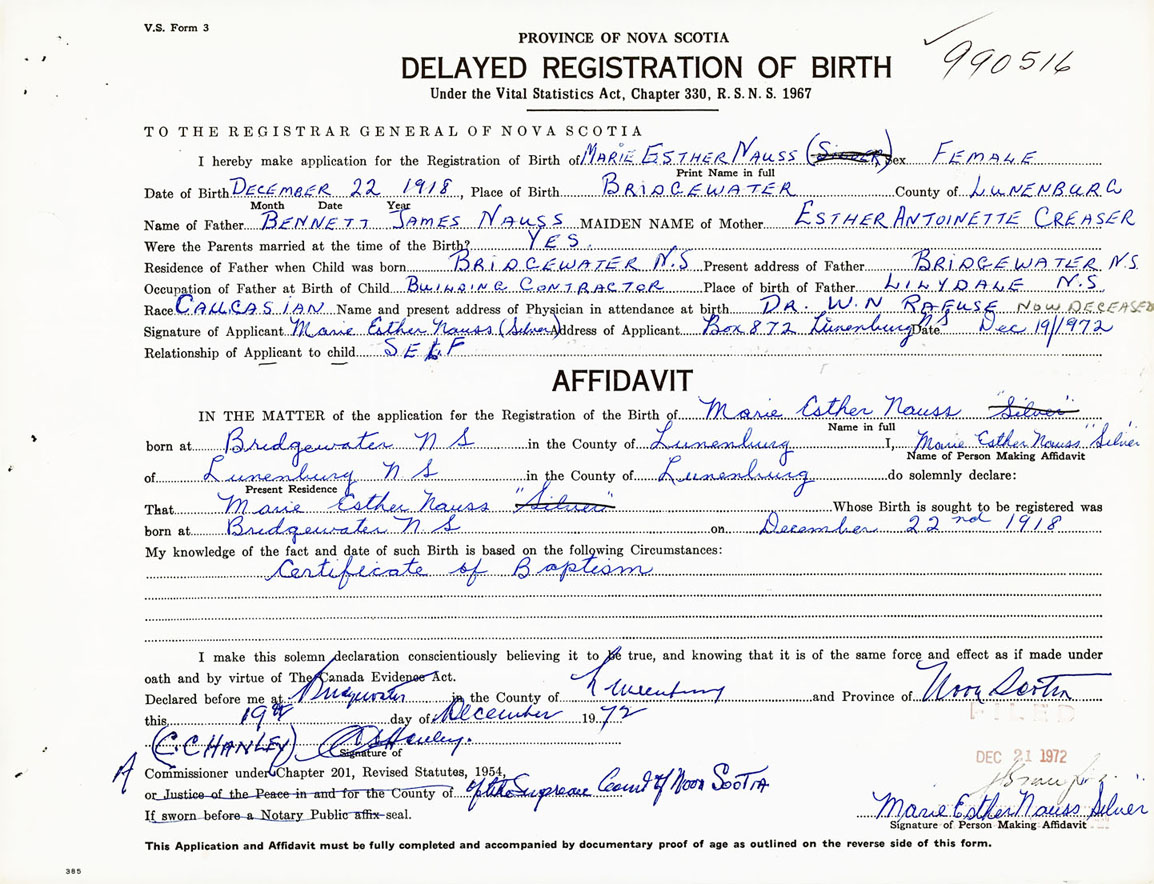 V.S. Form 3
PROVINCE OF NOVA SCOTIA
990516
DELAYED REGISTRATION OF BIRTH
Under the Vital Statistics Act, Chapter 330, R. S. N. S. 1967
TO THE REGISTRAR GENERAL OF NOVA SCOTIA
I hereby make application for the Registration of Birth of MARIE ESTHER NAUSS (SILVER) Sex FEMALE
Print Name in full
Date of Birth DECEMBER 22 1918, Place of Birth BRIDGEWATER County of LUNENBURG
Month Date Year
Name of Father BENNETT JAMES NAUSS MAIDEN NAME of Mother ESTHER ANTOINETTE CREASER
Were the Parents married at the time of the Birth? YES.
Residence of Father when Child was born BRIDGEWATER N.S Present address of Father BRIDGEWATER N.S.
Occupation of Father at Birth of Child BUILDING CONTRACTOR Place of birth of Father LILYDALE N.S
Race CAUCASIAN Name and present address of Physician in attendance at birth DR. W.N RAFUSE NOW DECEASED
Signature of Applicant Marie Esther Nauss (Silver) Address of Applicant Box 872 Lunenburg NS Date Dec 19/1972
Relationship of Applicant to child SELF
AFFIDAVIT
IN THE MATTER of the application for the Registration of the Birth of Marie Esther Nauss "Silver"
Name in full
born at Bridgewater N S in the County of Lunenburg I, Marie Esther Nauss "Silver"
Name of Person Making Affidavit
of Lunenburg N S in the County of Lunenburg do solemnly declare:
Present Residence
That Marie Esther Nauss "Silver" Whose Birth is sought to be registered was
born at Bridgewater N S on December 22nd 1918
My knowledge of the fact and date of such Birth is based on the following Circumstances:
Certificate of Baptism
I make this solemn declaration conscientiously believing it to be true, and knowing that it is of the same force and effect as if made under
oath and by virtue of The Canada Evidence Act.
Declared before me at Bridgewater in the County of Lunenburg and Province of Nova Scotia
this 19th day of December 1972
FILED
(C.C HANLEY) C C Hanley.
Signature of
DEC 21 1972
A Commissioner under Chapter 201, Revised Statutes, 1954,
or Justice of the Peace in and for the County of of the Supreme Court of Nova Scotia
If sworn before a Notary Public affix seal.
Marie Esther Nauss Silver
Signature of Person Making Affidavit
This Application and Affidavit must be fully completed and accompanied by documentary proof of age as outlined on the reverse side of this form.
385